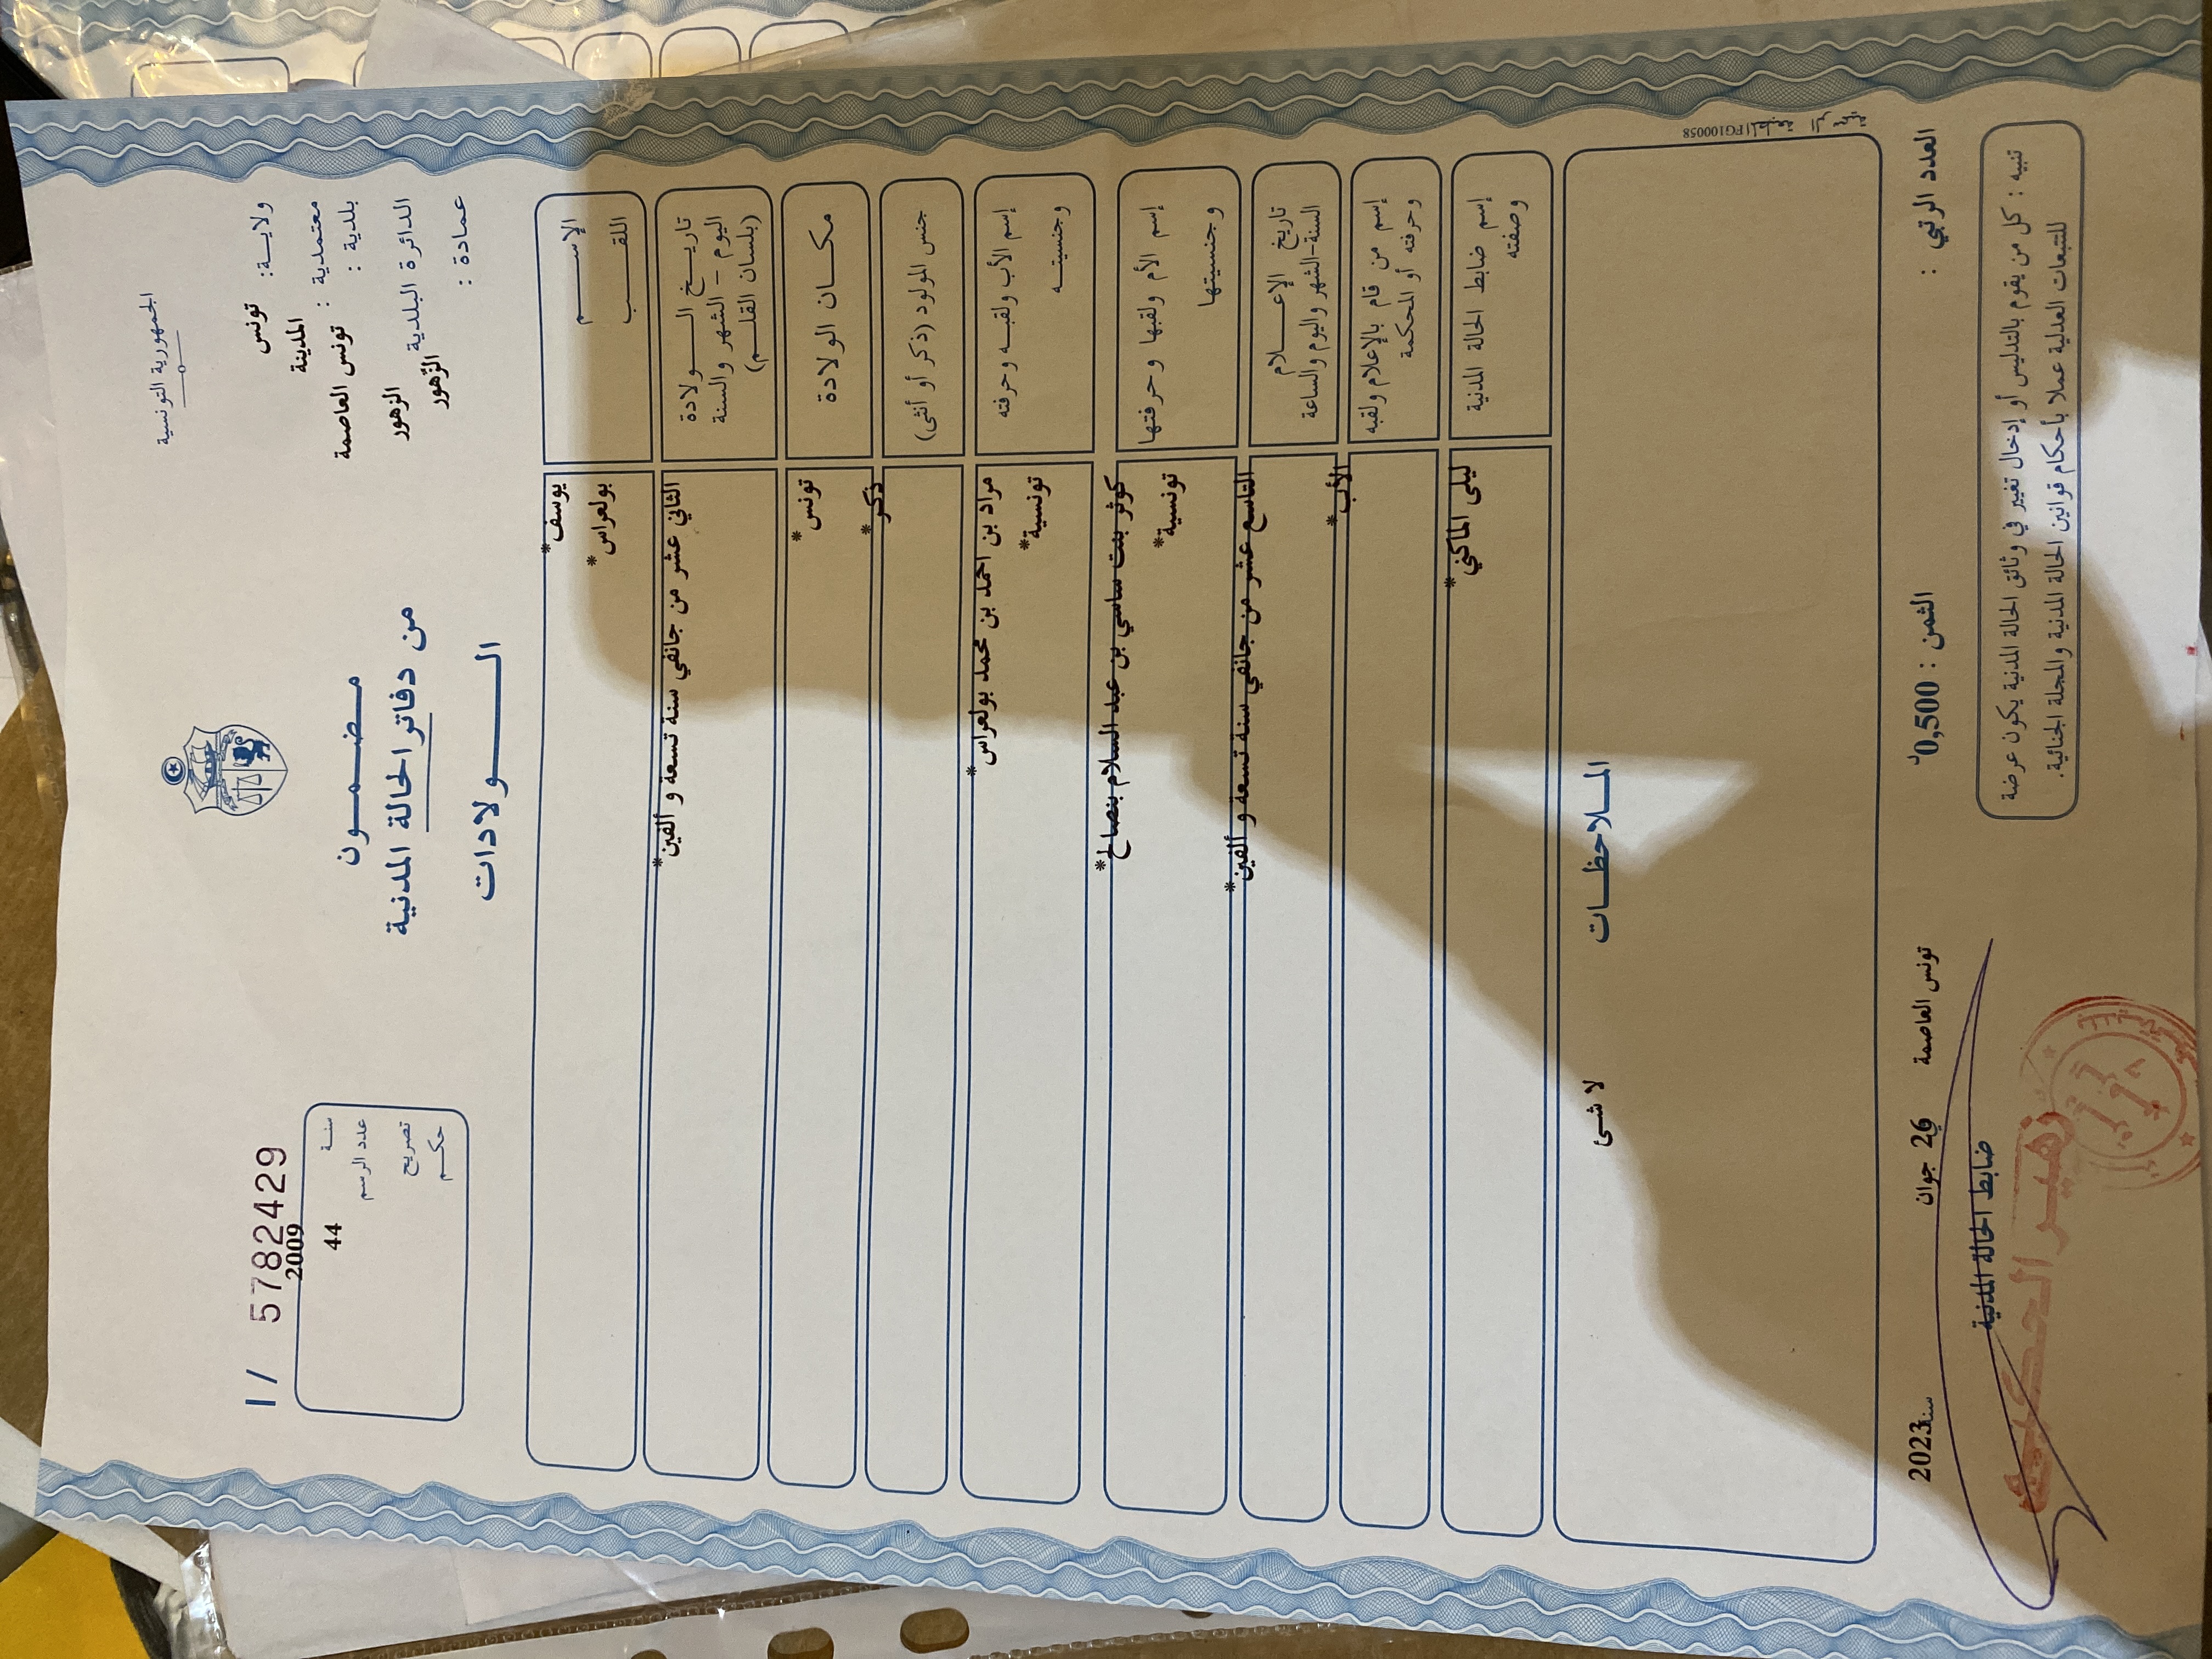 الجمهورية التونسية
ولاية: تونس
معتمدية : المدينة
بلدية : تونس العاصمة
الدائرة البلدية الزهور
عمادة : الزهور
I / 57824​29
سنة 2009
عدد الرسم 44
تصريح
حكم
مضمون
من دفاتر الحالة المدنية
الولادات
الإسم يوسف*
اللقب بولعراس*
تاريخ الولادة
اليوم - الشهر والسنة
(بلسان القلم)
الثاني عشر من جانفي سنة تسعة و ألفين*
مكان الولادة تونس*
جنس المولود (ذكر أو أنثى) ذكر*
إسم الأب ولقبه وحرفته مراد بن احمد بن محمد بولعراس*
وجنسيته تونسية*
إسم الأم ولقبها وحرفتها كوثر بنت ساسي بن عبد السلام بنصالح*
وجنسيتها تونسية*
تاريخ الإعلام
السنة-الشهر واليوم والساعة
التاسع عشر من جانفي سنة تسعة و ألفين*
إسم من قام بالإعلام ولقبه
وحرفته أو المحكمة
الأب*
إسم ضابط الحالة المدنية
وصفته
ليلى الماكني*
الملاحظات
لا شئ
FG100058
العدد الرتبي :
الثمن : 0,500د
تونس العاصمة في 26 جوان سنة 2023
تنبيه : كل من يقوم بالتدليس أو إدخال تغيير في وثائق الحالة المدنية يكون عرضة
للتتبعات العدلية عملا بأحكام قوانين الحالة المدنية والمجلة الجنائية.
ضابط الحالة المدنية